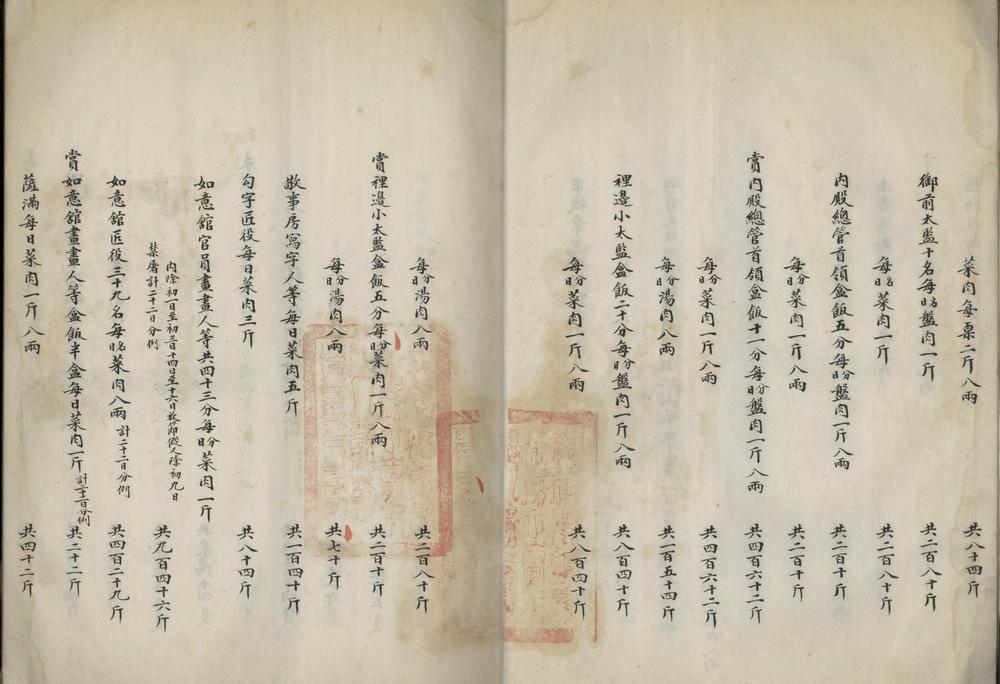 菜肉每桌二斤八兩 共八十四斤
御前太監十名每名日盤肉一斤 共二百八十斤
每名日菜肉一斤 共二百八十斤
內殿總管首領盒飯五分每分日盤肉一斤八兩 共二百十斤
每分日菜肉一斤八兩 共二百十斤
賞內殿總管首領盒飯十一分每分日盤肉一斤八兩 共四百六十二斤
每分日菜肉一斤八兩 共四百六十二斤
每分日湯肉八兩 共一百五十四斤
裡邊小太監盒飯二十分每分日盤肉一斤八兩 共八百四十斤
每分日菜肉一斤八兩 共八百四十斤
每分日湯肉八兩 共二百八十斤
賞裡邊小太監盒飯五分每分日菜肉一斤八兩 共二百十斤
每分日湯肉八兩 共七十斤
敬事房寫字人等每日菜肉五斤 共一百四十斤
勾字匠役每日菜肉三斤 共八十四斤
如意館官員畫畫人等共四十三分每分日菜肉一斤
內除初一日至初三日十四日至十六日放節假又除初九日
禁屠計二十二日分例 共九百四十六斤
如意館匠役三十九名每名日菜肉八兩 計二十二日分例 共四百二十九斤
賞如意館畫畫人等盒飯半盒每日菜肉一斤 計二十二日分例 共二十二斤
薩滿每日菜肉一斤八兩 共四十二斤